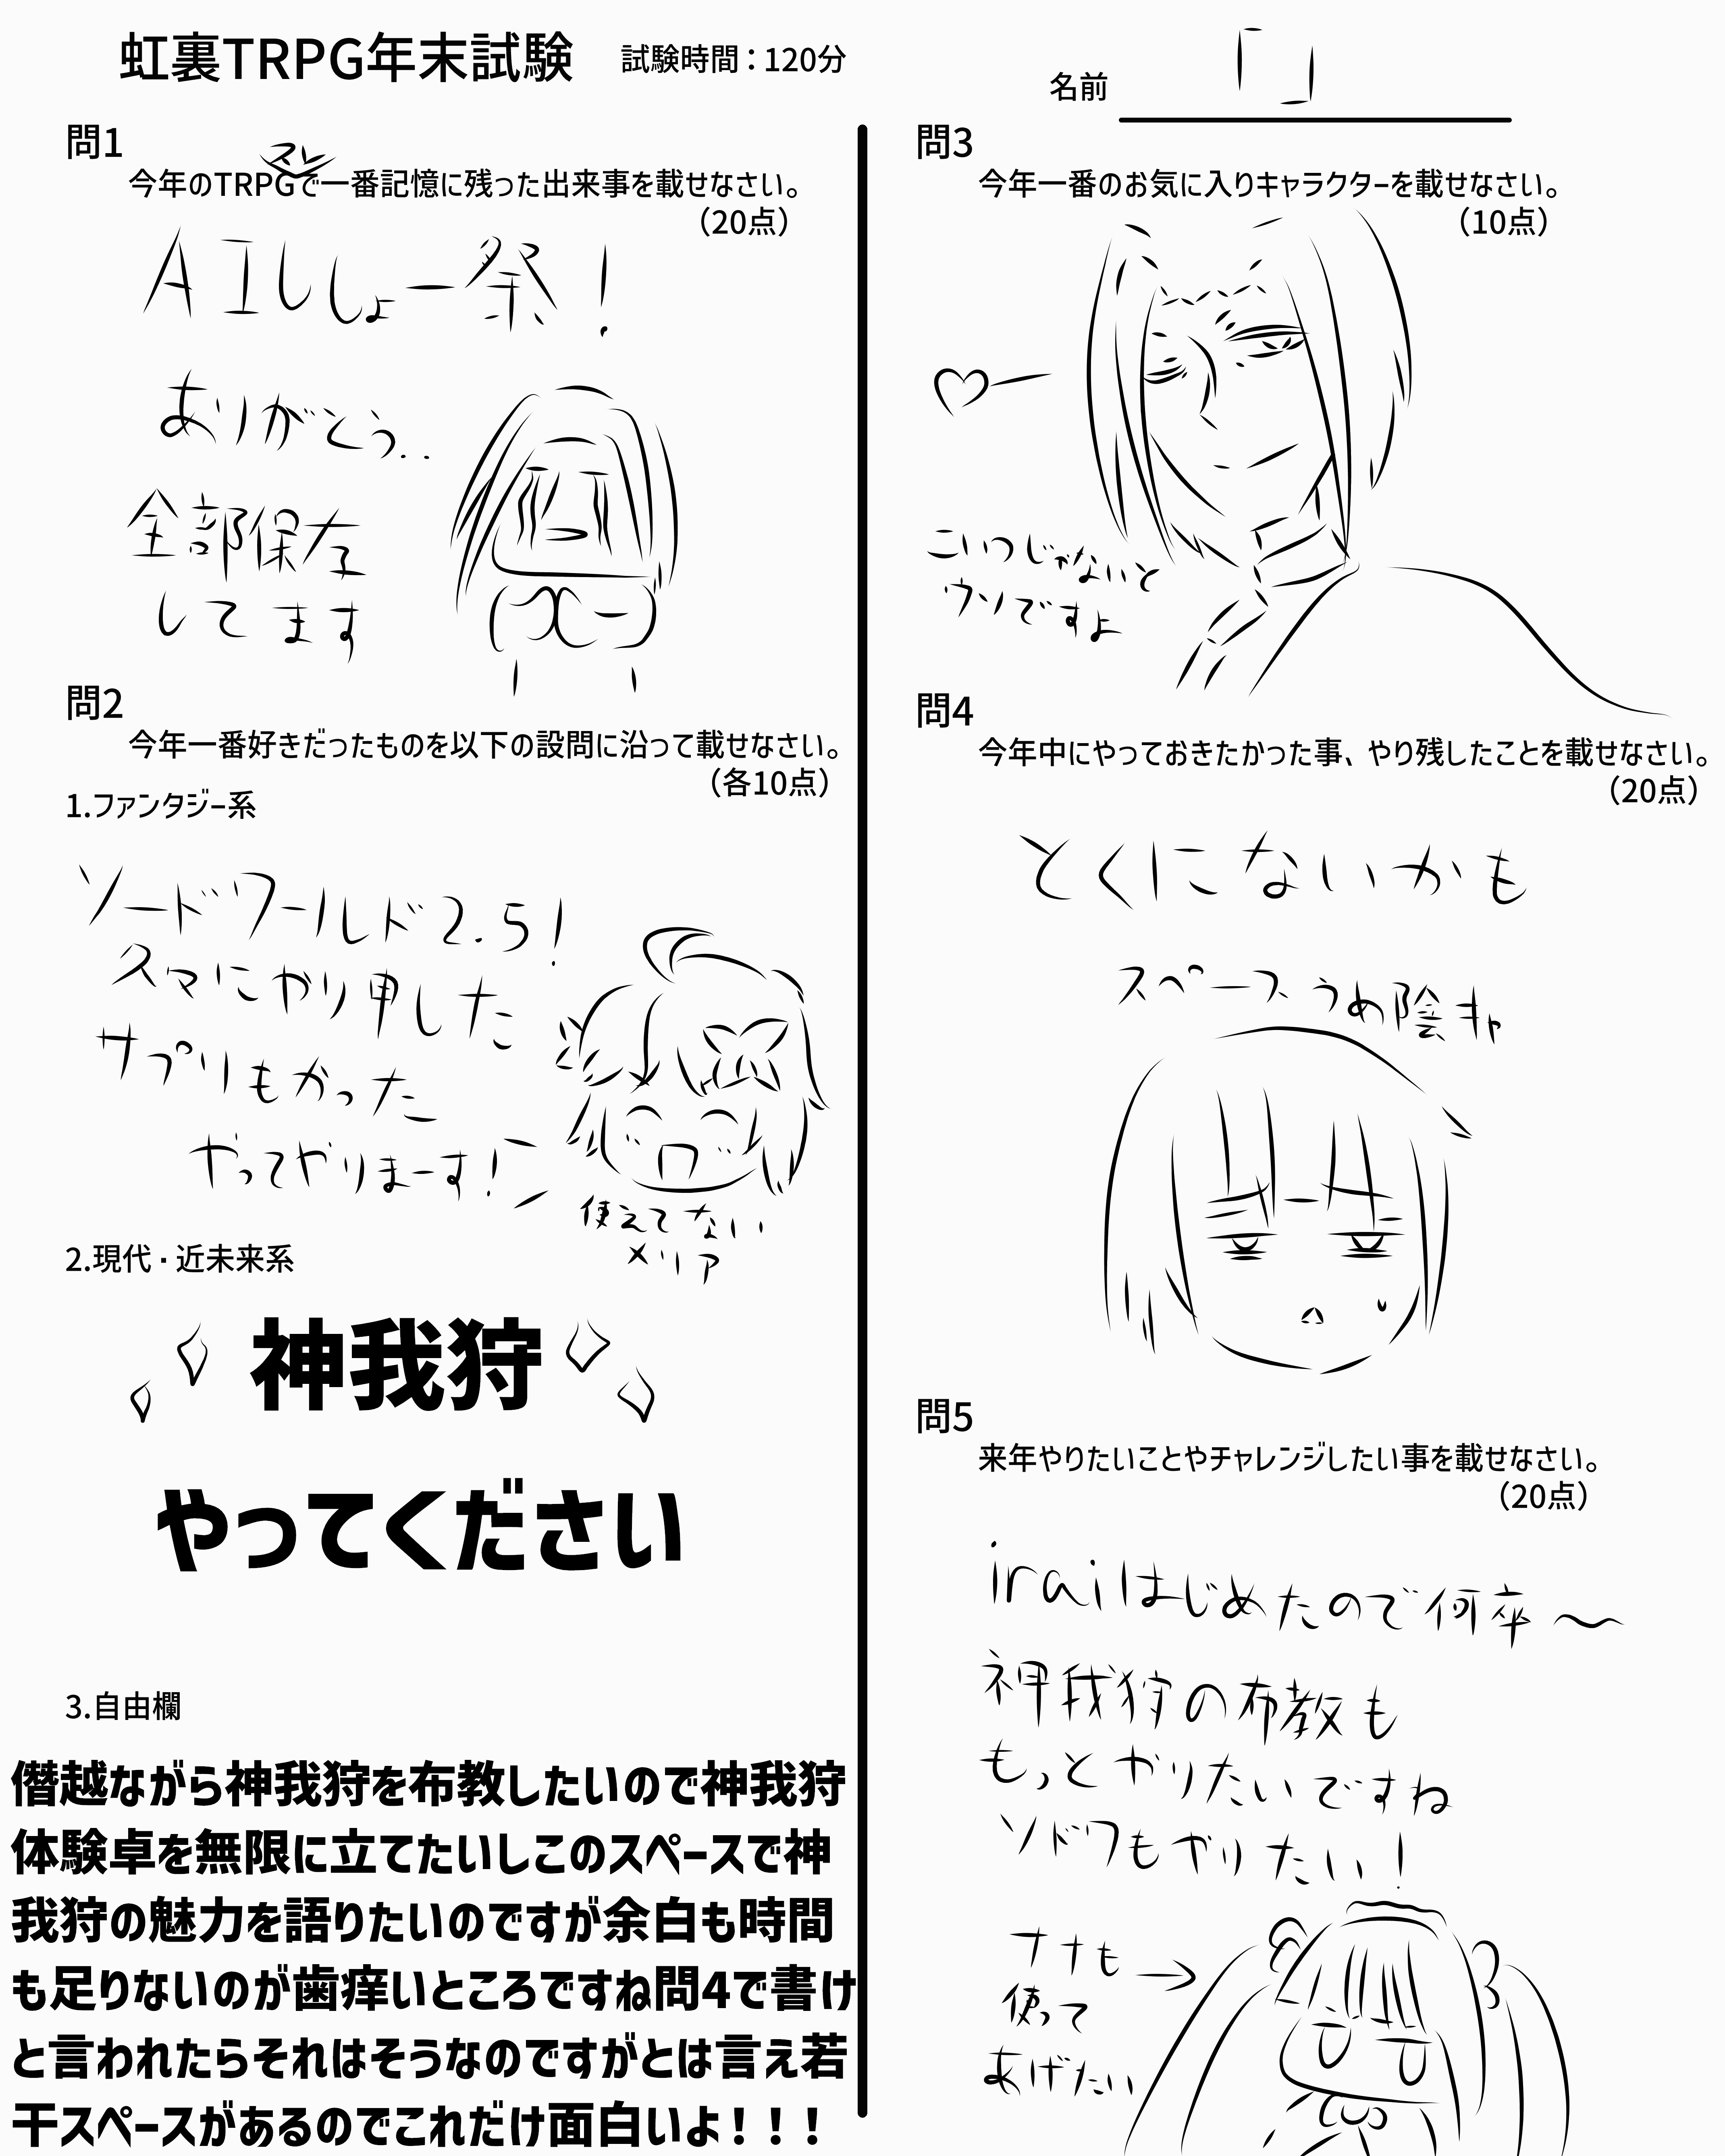 虹裏TRPG年末試験
試験時間：120分
名前
「 」
問1
今年のTRPGで一番記憶に残った出来事を載せなさい。
（20点）
AIししょー祭！
ありがとう..
全部保存
してます
問2
今年一番好きだったものを以下の設問に沿って載せなさい。
（各10点）
1.ファンタジー系
ソードワールド2.5！
久々にやり申した
サプリもかった
やってやりまーす！
使えてない
メリア
2.現代・近未来系
神我狩
やってください
3.自由欄
僭越ながら神我狩を布教したいので神我狩
体験卓を無限に立てたいしこのスペースで神
我狩の魅力を語りたいのですが余白も時間
も足りないのが歯痒いところですね問4で書け
と言われたらそれはそうなのですがとは言え若
干スペースがあるのでこれだけ面白いよ！！！
問3
今年一番のお気に入りキャラクターを載せなさい。
（10点）
こいつじゃないと
ウソですよ
問4
今年中にやっておきたかった事、やり残したことを載せなさい。
（20点）
とくにないかも
スペースうめ陰キャ
問5
来年やりたいことやチャレンジしたい事を載せなさい。
（20点）
iraiはじめたので何卒〜
神我狩の布教も
もっとやりたいですね
ソドワもやりたい！
ナナも
使って
あげたい